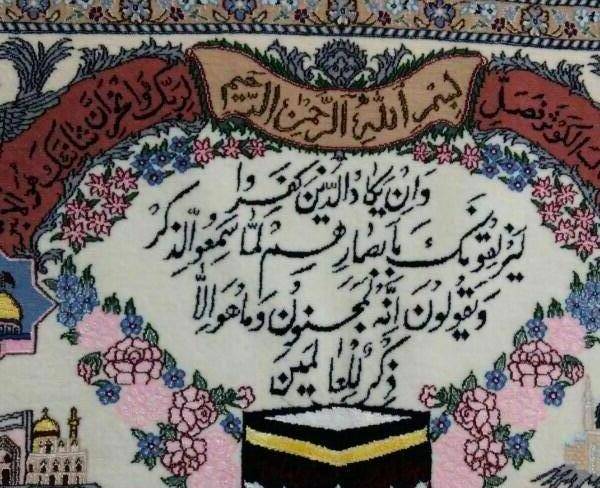 بسم الله الرحمن الرحیم
الکوثر فصل
لربک وانحر ان شانئک هو الابتر
وان یکاد الذین کفروا
لیزلقونک بابصارهم لما سمعوا الذکر
ویقولون انه لمجنون وما هو الا
ذکر للعالمین